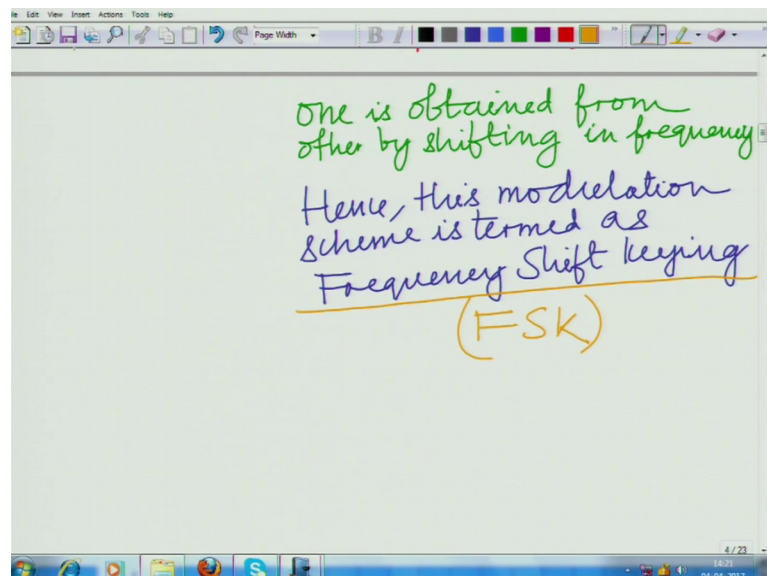 le Edit View Insert Actions Tools Help
Page Width
B I
one is obtained from
other by shifting in frequency
Hence, this modulation
scheme is termed as
Frequency Shift Keying
(FSK)
4 / 23
14:21
04-04-2017